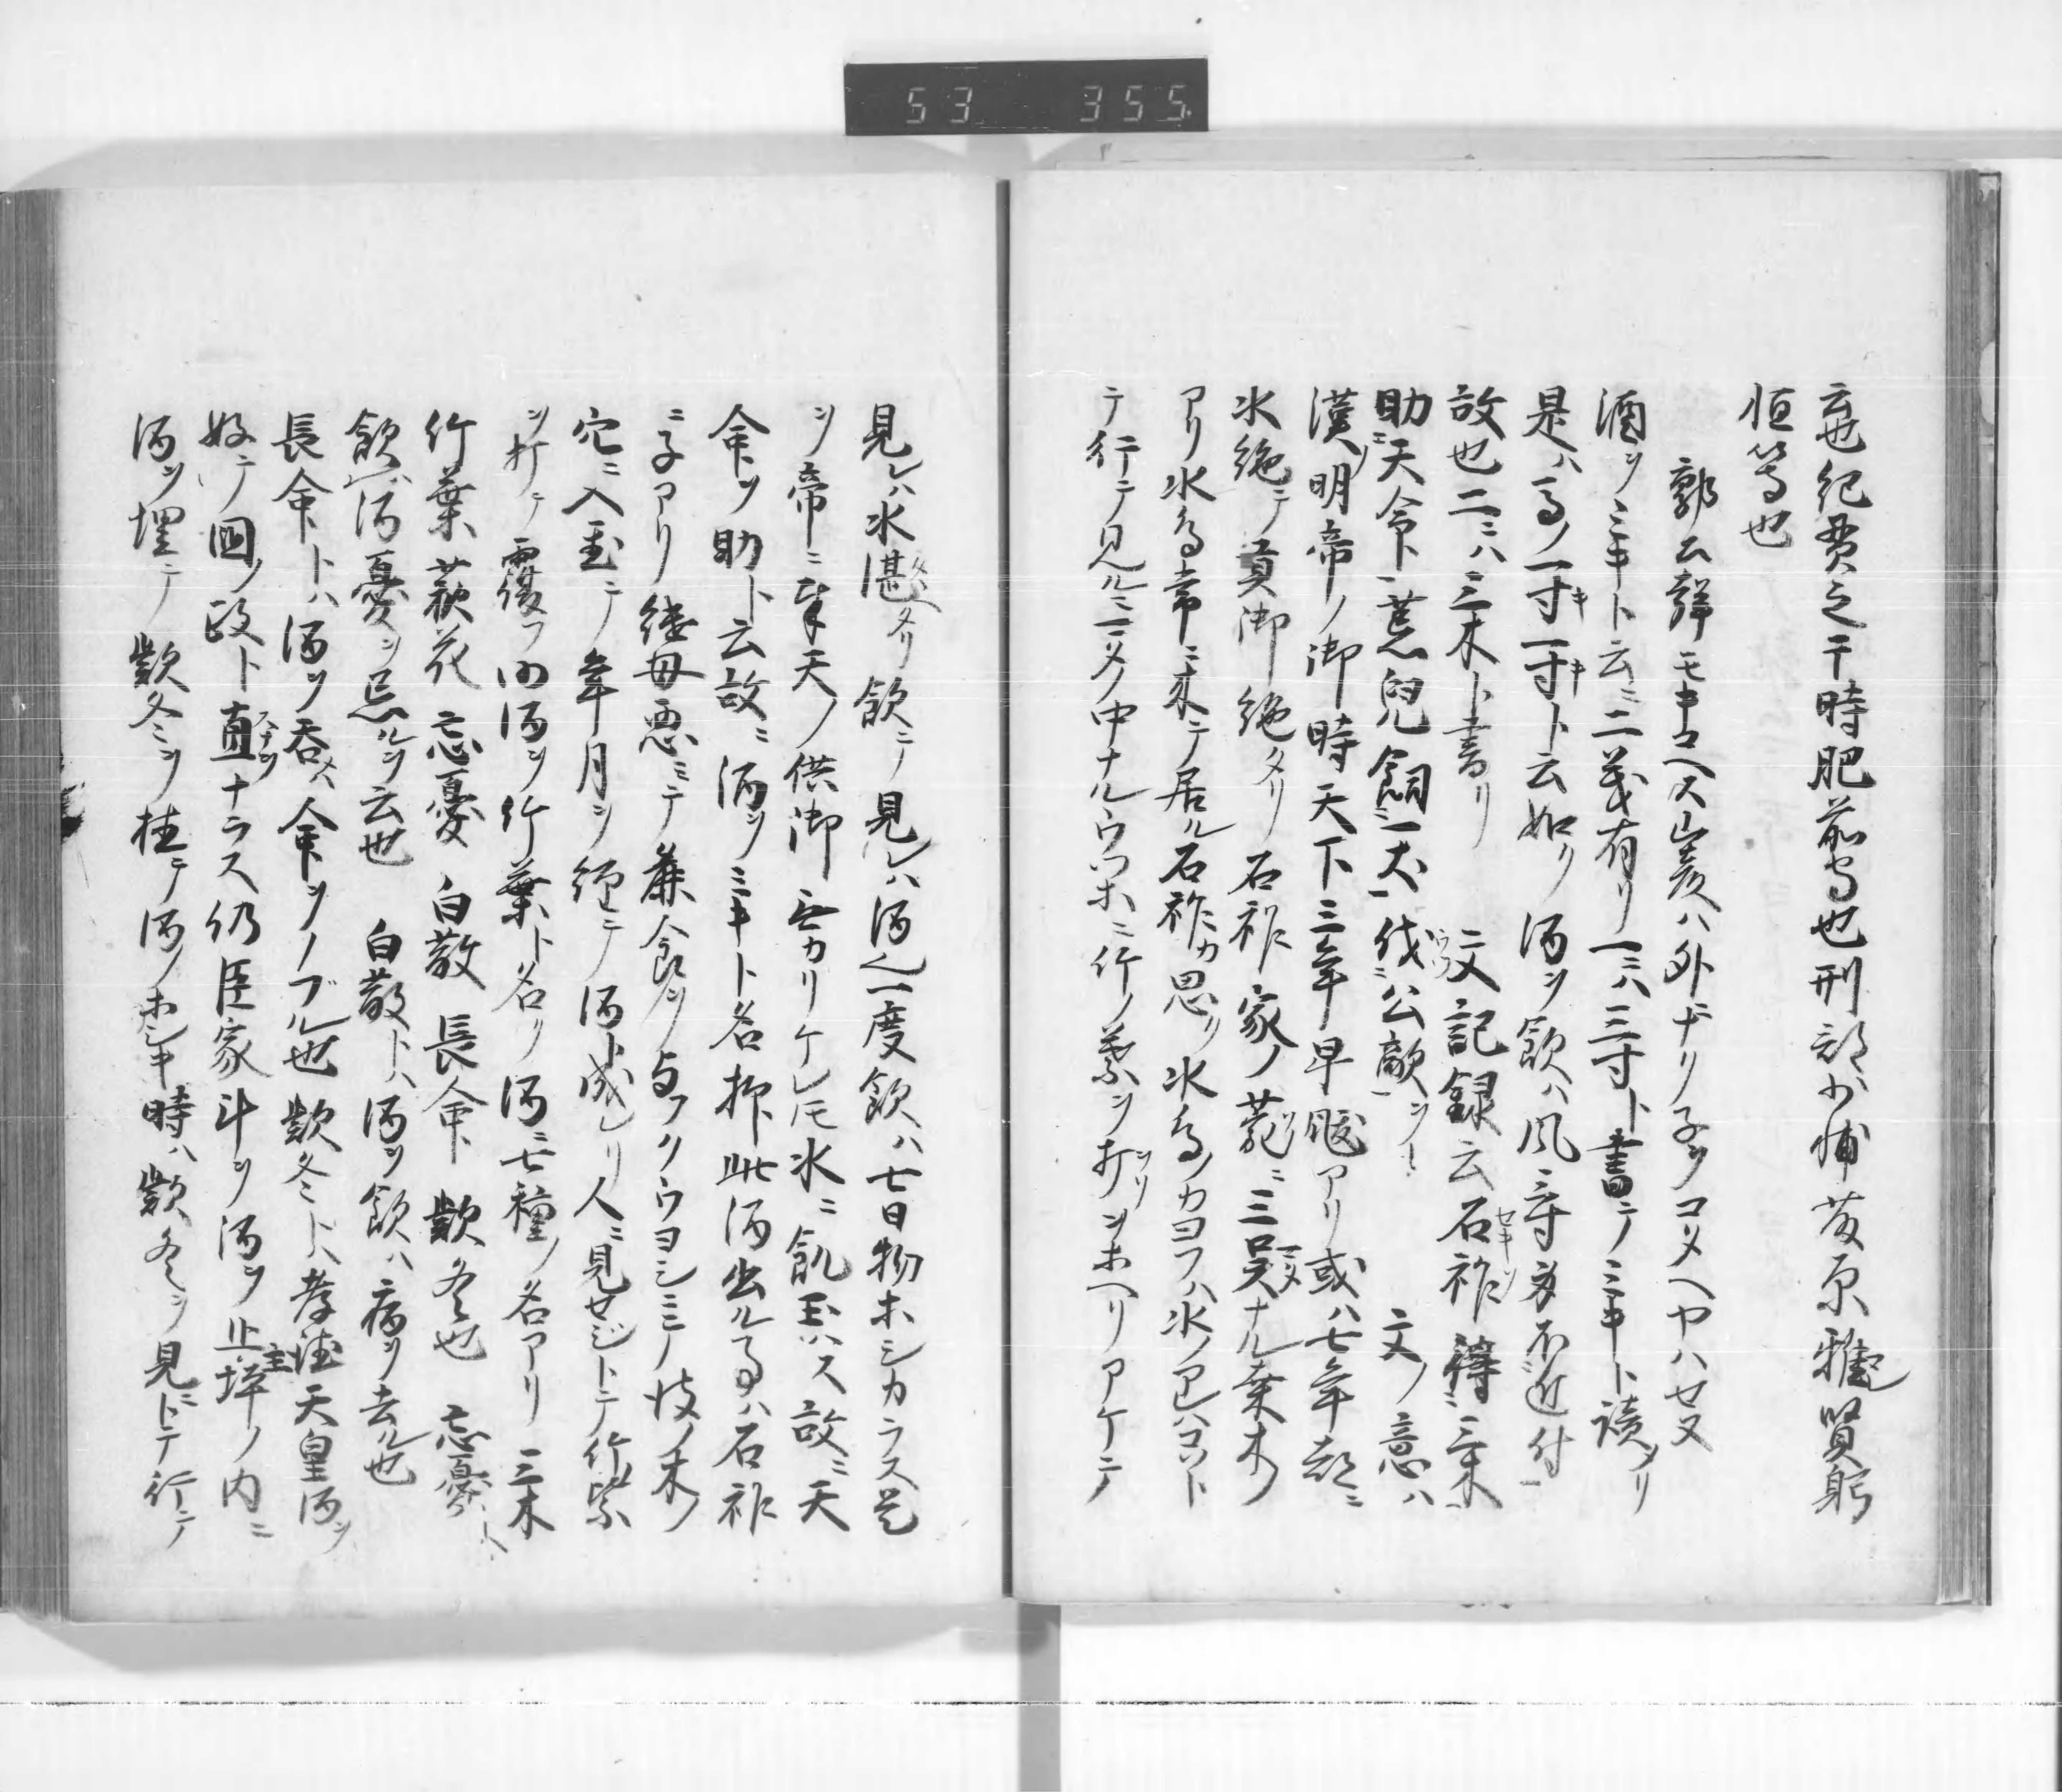 53 355
云也紀貫之于時肥前守也刑部少輔藤原雅賢躬
恒等也
郭公声モキコヘス山彦ハ外ナリ子ヲコタヘヤハセヌ
酒ヲミキト云ニ二義有リ一ニハ三寸ト書テミキト読リ
是ハ馬ノ一寸一寸ト云如ク酒ヲ飲ハ風三寸身不近付
故也二ニハ三木ト書リ 文記録云石祚得三木
助天命ト荒兒飼一犬伐公敵ヲ 文ノ意ハ
漢ノ明帝ノ御時天下三年旱颰アリ或ハ七年都ニ
水絶テ貢御絶タリ石祚家ノ薗ニ三曲ナル桑木
アリ水鳥常ニ来テ居ル石祚カ思ク水鳥ノカヨフハ水ノアレハコソト
テ行テ見ルニ三マタノ中ナルウツホニ竹ノ葉ヲ折ヲホヘリアケテ
見レハ水湛タリ飲テ見レハ酒也一度飲ハ七日物ホシカラス是
ヲ帝ニ奉天ノ供御無カリケレトモ水ニ飢玉ハス故ニ天
命ヲ助ト云故ニ酒ヲミキト名抑此酒出ル事ハ石祚
ニ子アリ継母悪ミテ蔴食ヲ与フクウヨシミノ枝ノ木ノ
穴ニ入置テ年月ヲ経テ酒ト成レリ人ニ見セジトテ竹葉
ヲ折テ覆フ由酒ヲ竹葉ト名リ酒ニ七種ノ名アリ三木
竹葉 萩花 忘憂 白散 長命 款冬也 忘憂ト
飲酒憂ヲ忘ルヲ云也 白散トハ酒ヲ飲ハ病ヲ去ル也
長命トハ酒ヲ呑ハ命ヲノブル也款冬トハ孝徳天皇酒ヲ
好テ国ノ政ト直ナラス仍臣家斗ヲ酒ヲ止坪ノ内ニ
酒ヲ埋テ款冬ヲ植テ酒ノホシキ時ハ款冬ヲ見ニトテ行テ